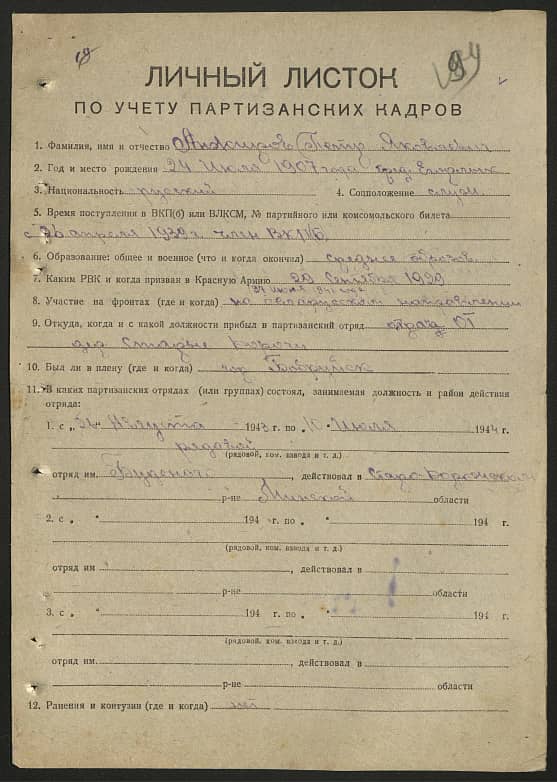 ЛИЧНЫЙ ЛИСТОК
ПО УЧЕТУ ПАРТИЗАНСКИХ КАДРОВ
1. Фамилия, имя и отчество Петр Яковлевич
2. Год и место рождения 24 Июля 1907 года
3. Национальность русский 4. Соцположение служ.
5. Время поступления в ВКП(б) или ВЛКСМ, № партийного или комсомольского билета
с 26 апреля 1939 г. член ВКПб
6. Образование: общее и военное (что и когда окончил) среднее
7. Каким РВК и когда призван в Красную Армию 29 Сентября 1939
8. Участие на фронтах (где и когда) на направлении
9. Откуда, когда и с какой должности прибыл в партизанский отряд
10. Был ли в плену (где и когда) Бобруйск
11. В каких партизанских отрядах (или группах) состоял, занимаемая должность и район действия
отряда:
1. с " Августа 1943 г. по 10 Июля 1944 г.
рядовой
(рядовой, ком. взвода и т. д.)
отряд им. Буденого, действовал в
р-не Минской области
2. с " " 194 г. по " 194 г.
(рядовой, ком. взвода и т. д.)
отряд им , действовал в
р-не области
3. с " " 194 г. по " 194 г.
(рядовой, ком. взвода и т. д.)
отряд им. , действовал в
р-не области
12. Ранения и контузии (где и когда) нет